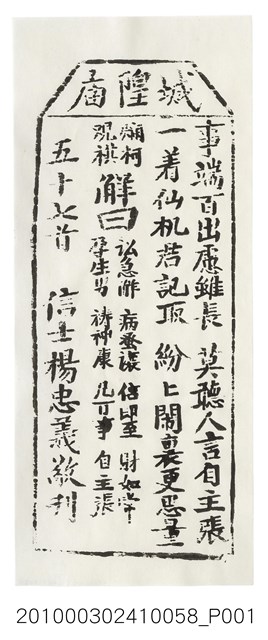 城隍廟
事端百出慮雖長 莫聽人言自主張
一着仙机君記取 紛〻鬧裏更思量
爛柯
觀棋
解曰 訟急訴 病番瀼 信即至 財如常
孕生男 禱神康 凡百事 自主張
五十七首 信士楊忠義敬刊
201000302410058_P001